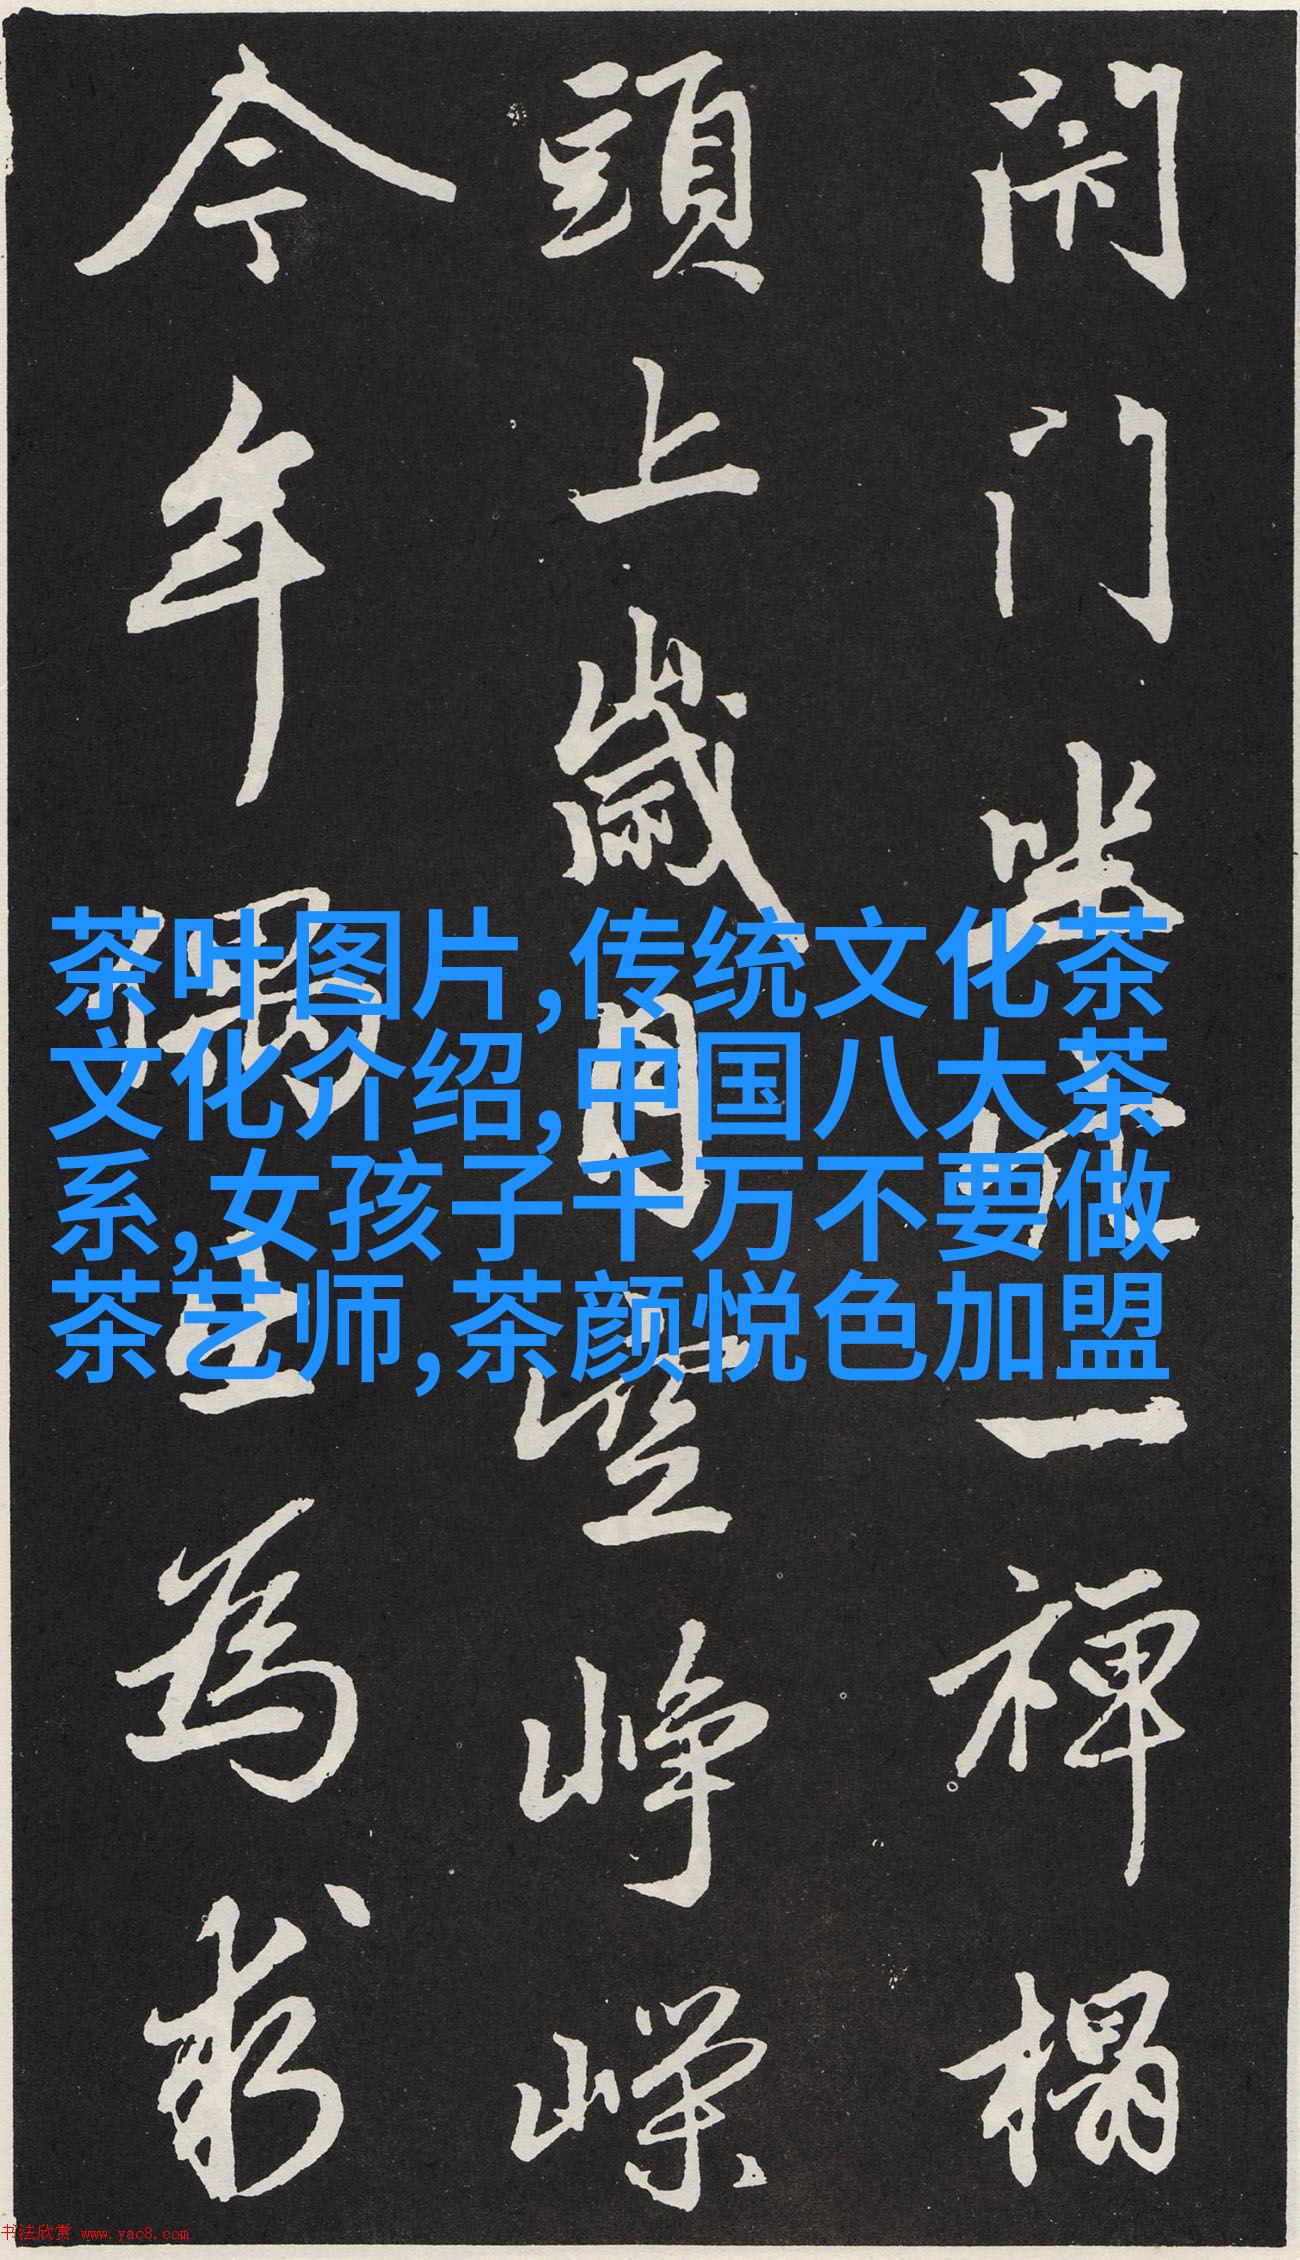 閉門坐穴一禪榻
頭上歲月空崢嶸
今年偶出為求
茶叶图片,传统文化茶
文化介绍,中国八大茶
系,女孩子千万不要做
茶艺师,茶颜悦色加盟
书法欣赏 www.yac8.com